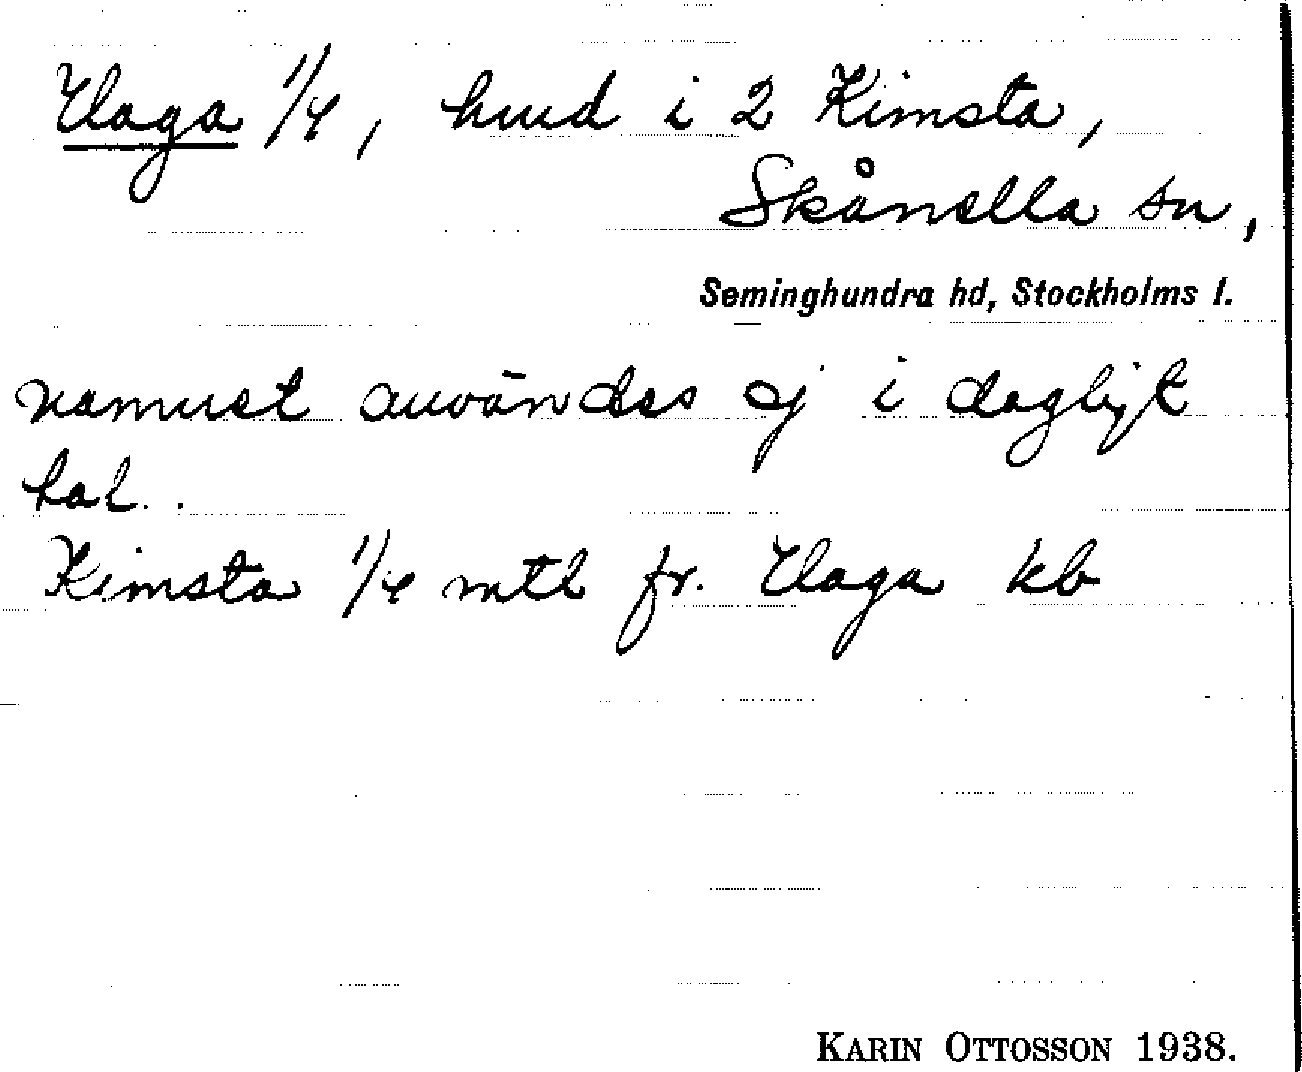 Haga 1/4, hmd i 2 Kimsta,
Skånella sn,
Seminghundra hd, Stockholms l.
namnet användes ej i dagligt
tal.
Kimsta 1/4 mtl fr. Haga kb
KARIN OTTOSSON 1938.